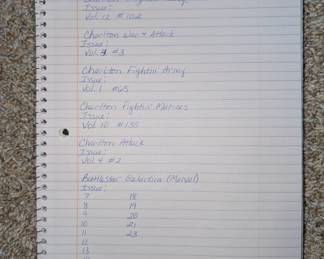 Issue:
Vol. 12 # 102
Charlton War & Attack
Issue:
Vol. 4 #3
Charlton Fightin' Army
Issue:
Vol. 1 #65
Charlton Fightin' Marines
Issue:
Vol. 10 #135
Charlton Attack
Issue:
Vol. 4 #2
Battlestar Galactica (Marvel)
Issue:
7 18
8 19
9 20
10 21
11 23
12
13